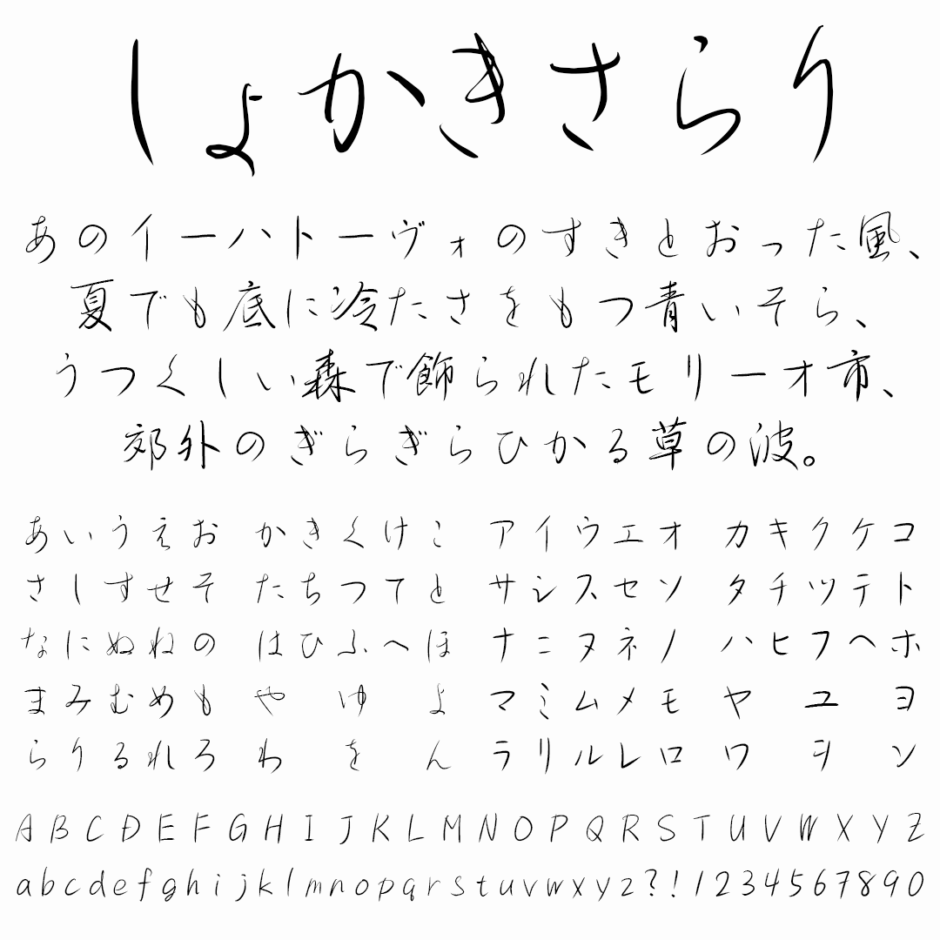 しょかきさらり
あのイーハトーヴォのすきとおった風、
夏でも底に冷たさをもつ青いそら、
うつくしい森で飾られたモリーオ市、
郊外のぎらぎらひかる草の波。
あいうえお かきくけこ アイウエオ カキクケコ
さしすせそ たちつてと サシスセソ タチツテト
なにぬねの はひふへほ ナニヌネノ ハヒフヘホ
まみむめも や ゆ よ マミムメモ ヤ ユ ヨ
らりるれろ わ を ん ラリルレロ ワ ヲ ン
ABCDEFGHIJKLMNOPQRSTUVWXYZ
abcdefghijklmnopqrstuvwxyz?!1234567890